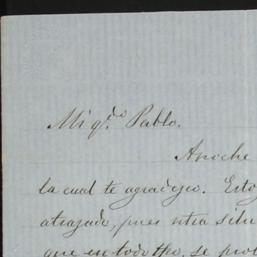 Mi q.do Pablo.
Anoche
la cual te agradezco. Estoy
atrazado, pues ntra situ
que en todo tpo. se pro